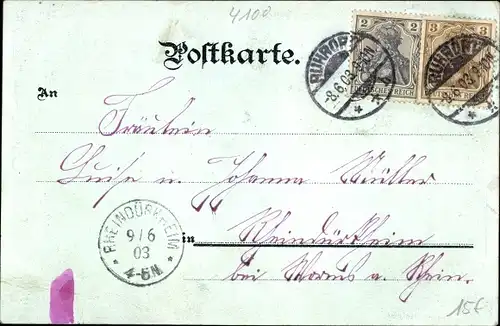 4100
Postkarte.
2 3
DEUTSCHES REICH
RUHRORT
-8.6.03.
RUHRORT
-8.6.03.
An
Fräulein
Luise u. Johanna Müller
in Rheindürkheim
bei Worms a. Rhein.
RHEINDÜRKHEIM
9/6
03
4-5N.
15f